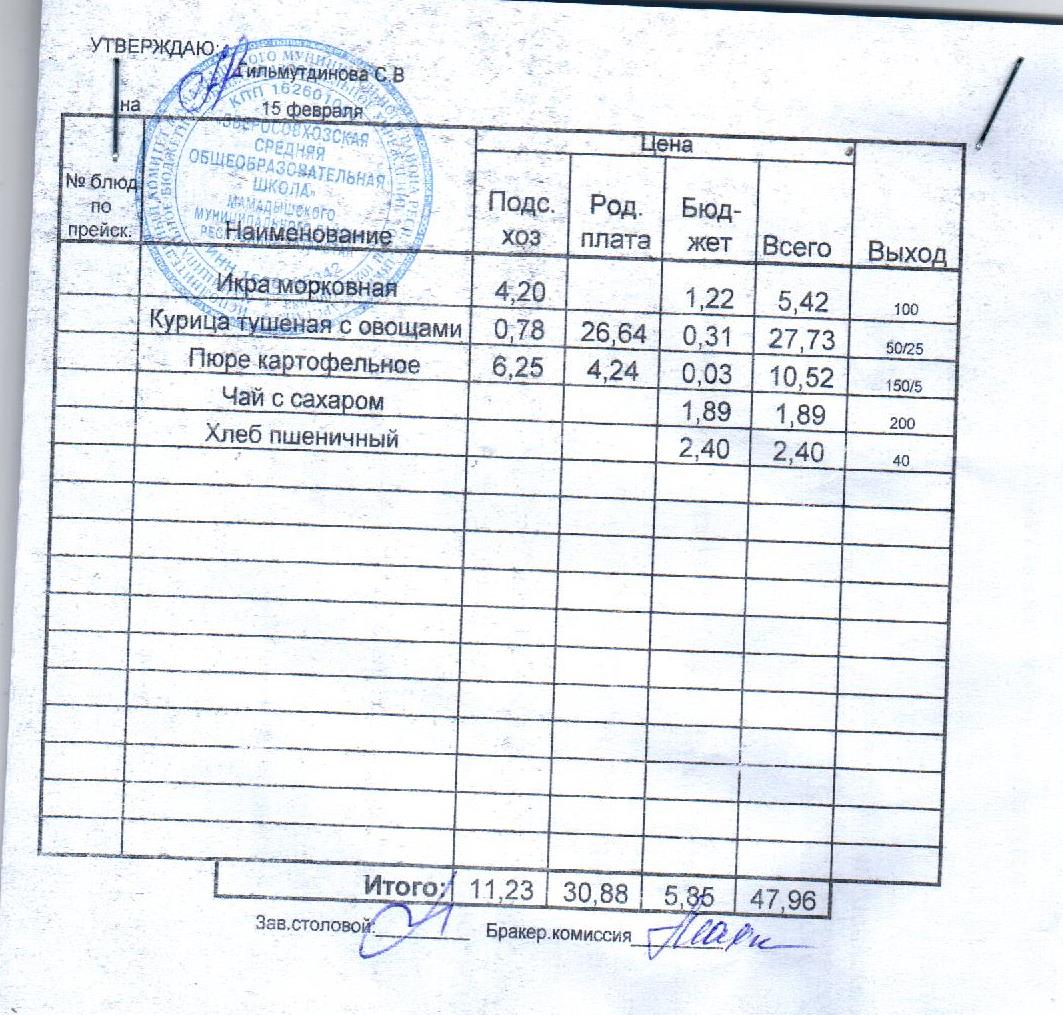 УТВЕРЖДАЮ:
Гильмутдинова С.В
на 15 февраля
КПП 1626010
СРЕДНЯЯ
ОБЩЕОБРАЗОВАТЕЛЬНАЯ
ШКОЛА»
МАМАДЫШСКОГО
№ блюд по прейск. Наименование Цена Выход
Подс. хоз Род. плата Бюд-жет Всего
Икра морковная 4,20 1,22 5,42 100
Курица тушеная с овощами 0,78 26,64 0,31 27,73 50/25
Пюре картофельное 6,25 4,24 0,03 10,52 150/5
Чай с сахаром 1,89 1,89 200
Хлеб пшеничный 2,40 2,40 40
Итого: 11,23 30,88 5,85 47,96
Зав.столовой: Бракер.комиссия